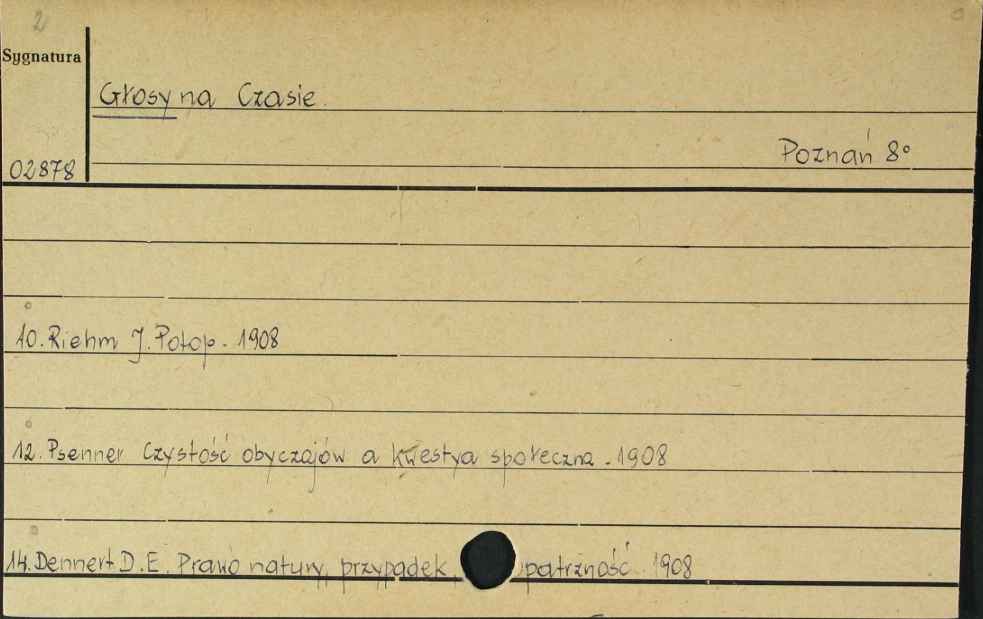 2
Sygnatura
Głosy na Czasie.
Poznań 8°
02878
10. Riehm J. Potop. 1908
12. Psenner Czystość obyczajów a kwestya społeczna. 1908
14. Dennert D.E. Prawo natury, przypadek, patrzność 1908